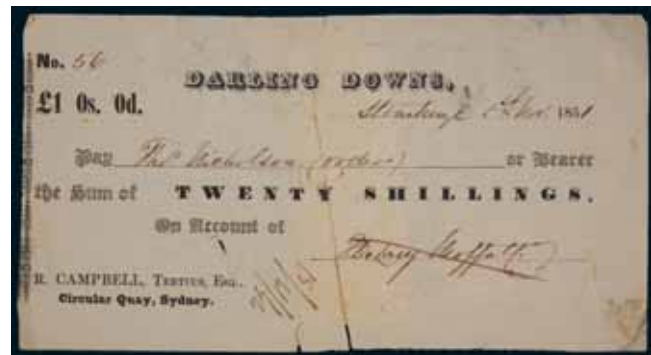 No. 56
DARLING DOWNS,
£1 0s. 0d.
1st Nov. 1851
Pay Thos Nicholson (order) or Bearer
the Sum of TWENTY SHILLINGS.
On Account of
R. CAMPBELL, TERTIUS, ESQ.,
Circular Quay, Sydney.